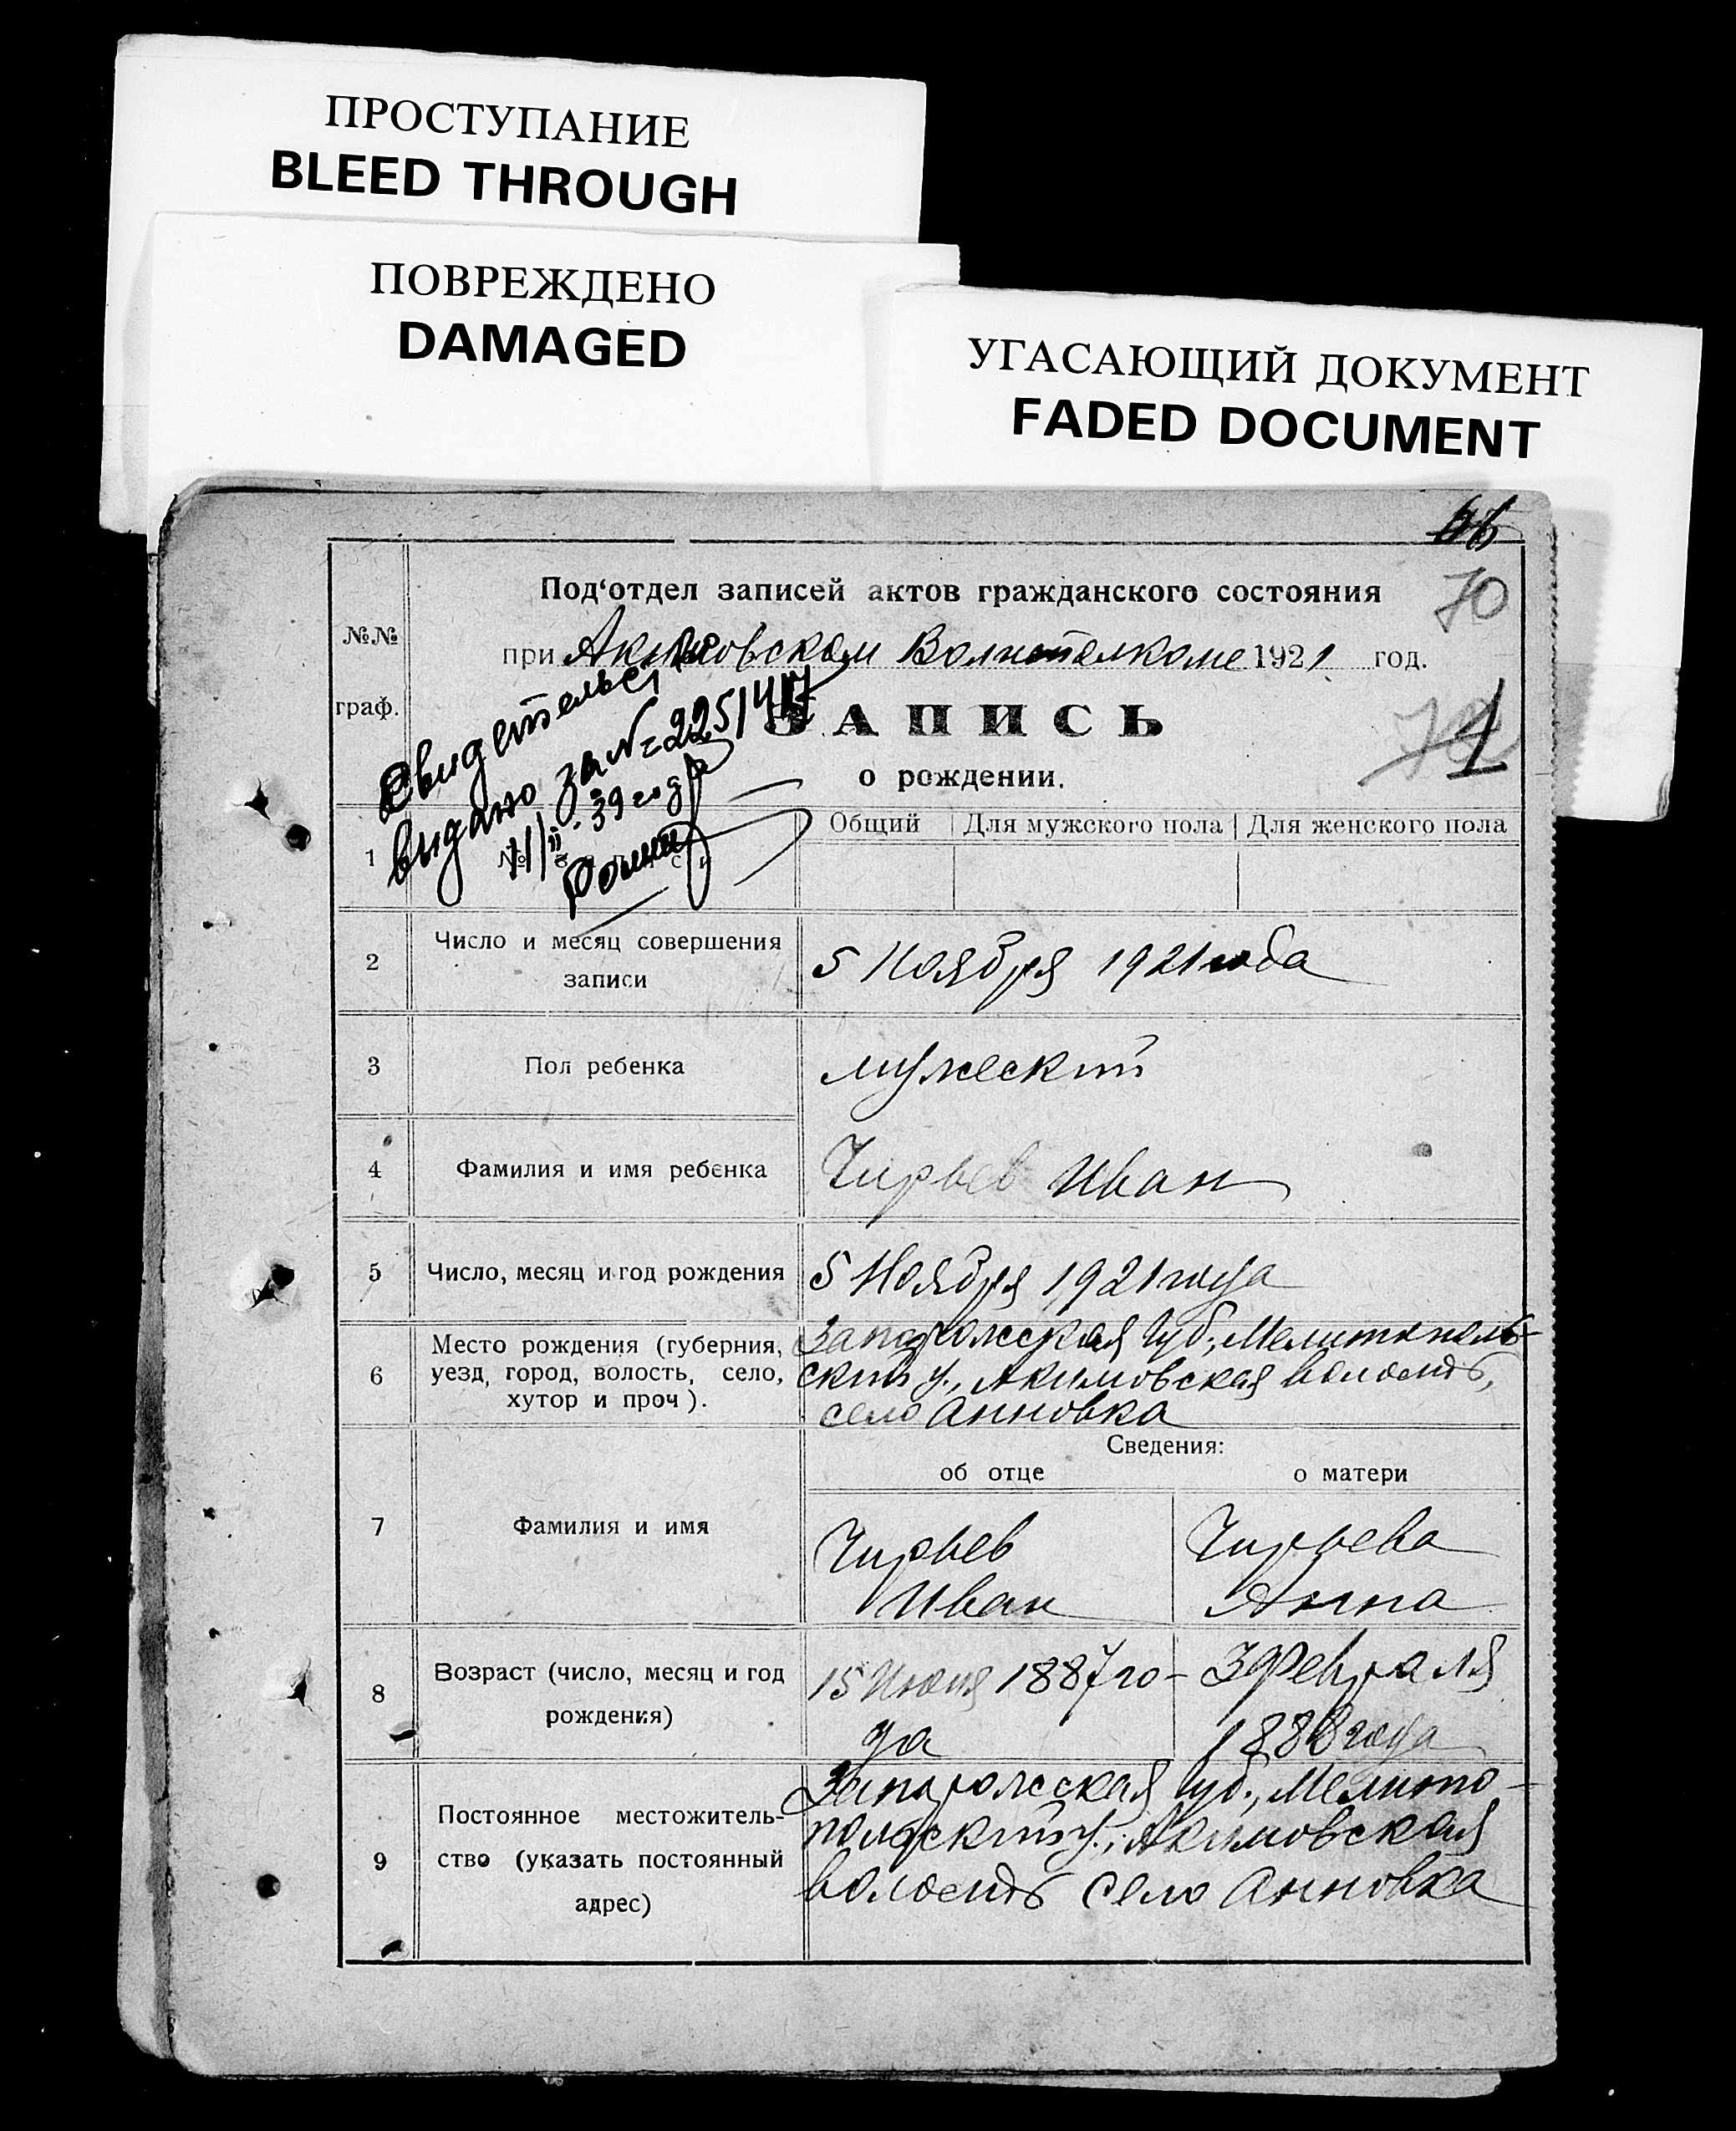 ПРОСТУПАНИЕ
BLEED THROUGH
ПОВРЕЖДЕНО
DAMAGED
УГАСАЮЩИЙ ДОКУМЕНТ
FADED DOCUMENT
70
№№
граф.
Под‘отдел записей актов гражданского состояния
при Акимовском Волисполкоме 1921 год.
ЗАПИСЬ
о рождении.
Свидетельство
выдано за № 225147
11/II - 39 года
1
Общий Для мужского пола Для женского пола
2 Число и месяц совершения
записи
5 Ноября 1921 года
3 Пол ребенка мужеский
4 Фамилия и имя ребенка Чирьев Иван
5 Число, месяц и год рождения 5 Ноября 1921 года
6 Место рождения (губерния,
уезд, город, волость, село,
хутор и проч).
Запорожская Губ., Мелитополь-
ский у., Акимовская волость,
село Анновка
Сведения:
об отце о матери
7 Фамилия и имя
Чирьев Чирьева
Иван Анна
8 Возраст (число, месяц и год
рождения)
15 Июня 1887 го- 3 Февраля
да 1888 года
9 Постоянное местожитель-
ство (указать постоянный
адрес)
Запорожская губ., Мелито-
польский у., Акимовская
волость село Анновка